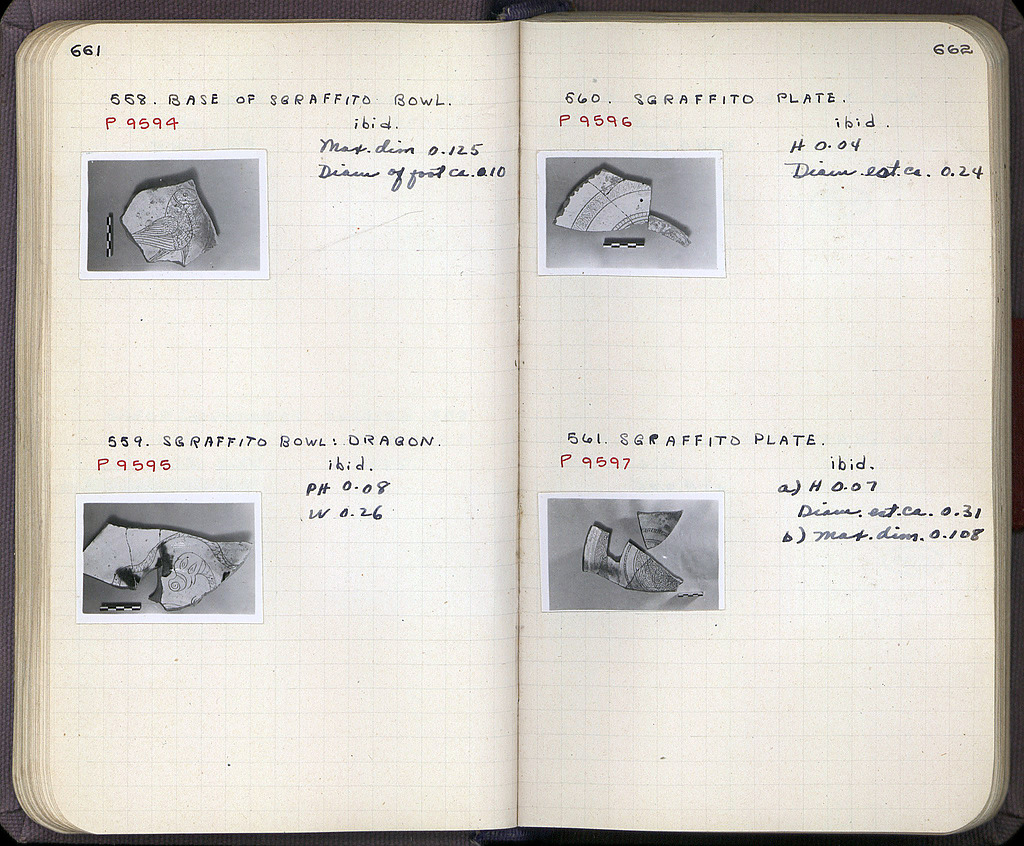 661
558. BASE OF SGRAFFITO BOWL.
P 9594 ibid.
Max. dim 0.125
Diam of foot ca. 0.10
559. SGRAFFITO BOWL: DRAGON.
P 9595 ibid.
PH 0.08
W 0.26
662
560. SGRAFFITO PLATE.
P 9596 ibid.
H 0.04
Diam. est. ca. 0.24
561. SGRAFFITO PLATE.
P 9597 ibid.
a) H 0.07
Diam. est. ca. 0.31
b) max. dim. 0.108